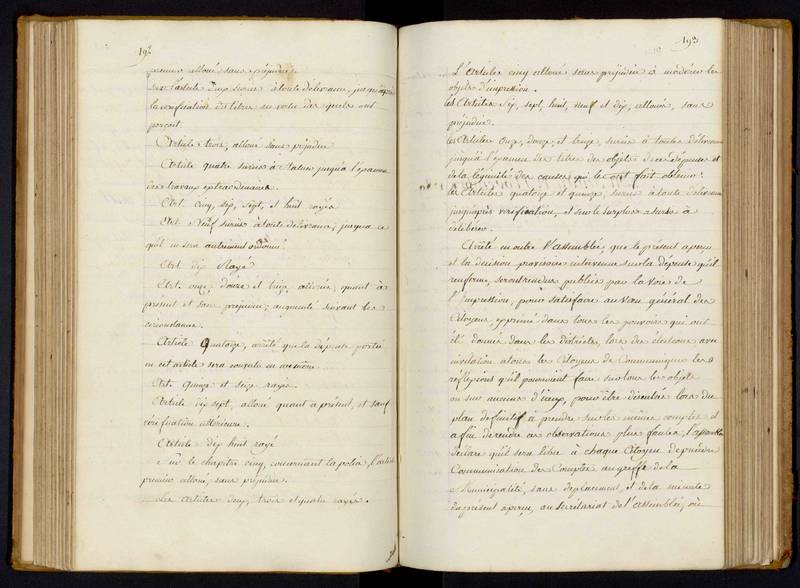 192
premier alloué sans préjudice.
Sur l'article deux sursis à toute délivrance, jusqu'après
la vérification des titres en vertu des quels ont
perçoit.
Article trois, alloué sans préjudice
Article quatre sursis à statuer jusqu'à l'examen
des travaux extraordinaires
Art. cinq, six, sept, et huit rayés
Art. Neuf sursis à toute délivrance, jusqu'a ce
qu'il en sera autrement ordonné
Art dix Rayé
Art. onze, douze et treize, alloués, quant à
présent et sans préjudice, augmenté suivant les
circonstances.
Article Quatorze, arrêté que la dépense portée
en cet article sera convertie en
Art. Quinze et seize rayés.
Article dix sept, alloué quant à présent, et sauf
vérification ultérieure.
Article dix huit rayé
Sur le chapitre cinq, concernant la police, l'article
premier alloué, sans préjudice.
Les articles deux, trois et quatre rayés.
193
L'article cinq alloué sans préjudice à modérer les
objets d'impression.
les Articles six, sept, huit, neuf et dix, alloués, sans
préjudice.
les Articles onze, douze, et treize, sursis à toutes délivrances
jusqu'à l'examen des titres des objets de ces dépenses et
de la légimité des causes qui les ont fait obtenir.
les Articles quatorze et quinze, sursis à toute délivrance
jusqu'après vérification, et sur le surplus a sursis à
délibérer.
Arrêté en outre l'assemblée, que le présent aperçu
et la décision provisoire intervenue sur la dépense qu'il
renferme, seront rendus publics par la voie de
l'impression, pour satisfaire au vœu général des
Citoyens, exprimé dans tous les pouvoirs qui ont
été donnés dans les districts, lors des élections avec
invitation à tous les Citoyens de Communiquer les
réflexions qu'il pourraient faire sur tous les objets
ou sur aucuns d'eux, pour être discutés lors du
plan définitif à prendre sur les mêmes comptes et
afin de rendre ces observations plus faciles, l'assemblée
déclare qu'il sera libre à chaque Citoyen de prendre
Communication des Comptes au greffe de la
Municipalité, sans déplacement, et de la minute
du présent aperçu, au secrétariat de l'assemblée, où